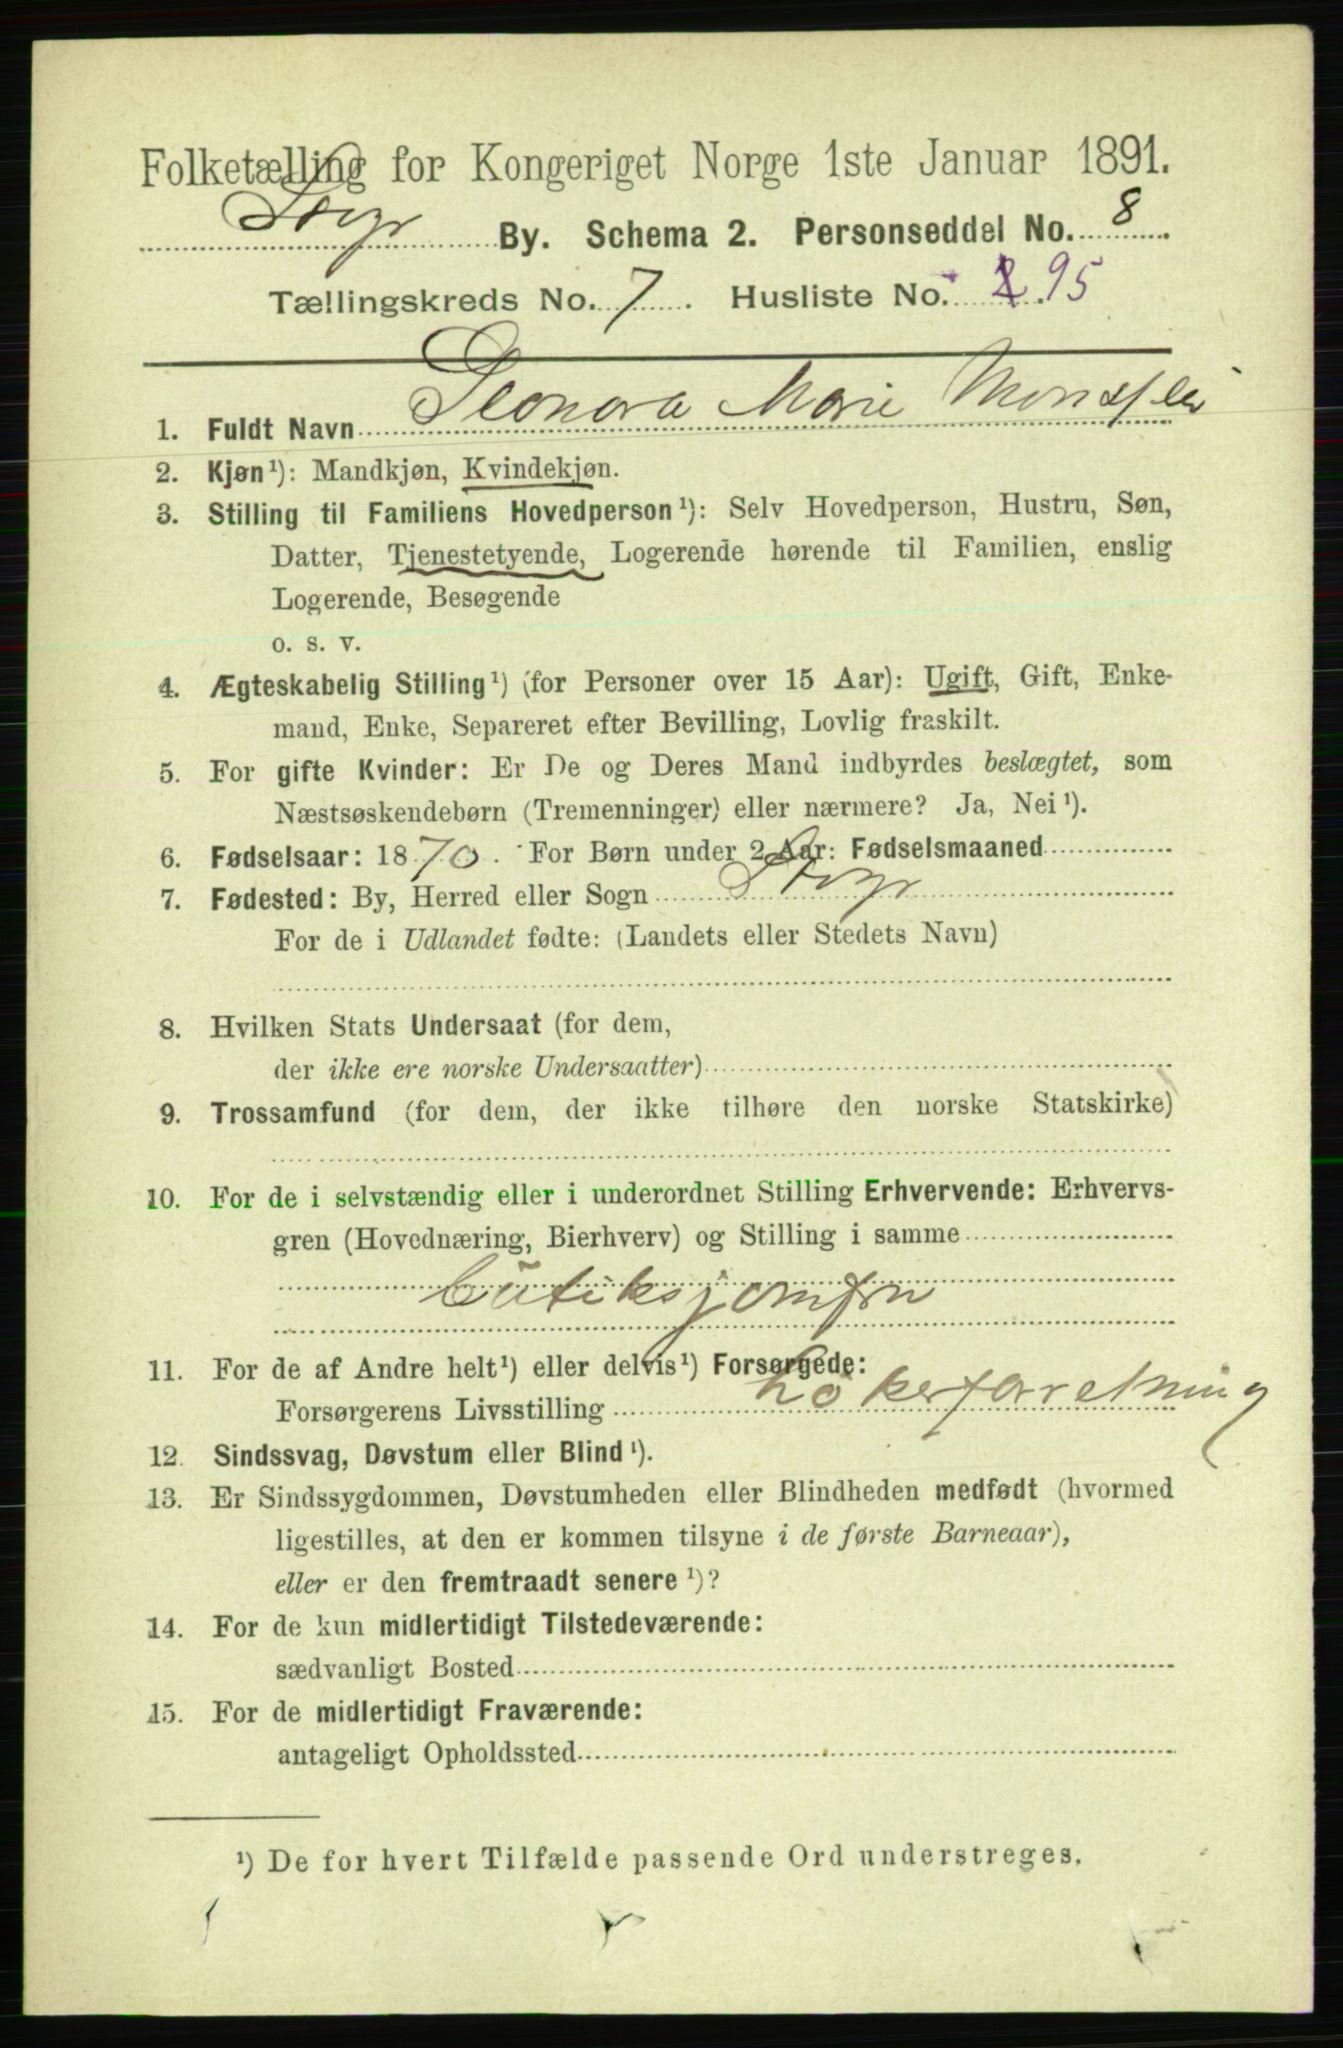 Folketælling for Kongeriget Norge 1ste Januar 1891.
By. Schema 2. Personseddel No. 8
Tællingskreds No. 7. Husliste No. 95
1. Fuldt Navn Leonora Marie
2. Kjøn¹): Mandkjøn, Kvindekjøn.
3. Stilling til Familiens Hovedperson¹): Selv Hovedperson, Hustru, Søn,
Datter, Tjenestetyende, Logerende hørende til Familien, enslig
Logerende, Besøgende
o. s. v.
4. Ægteskabelig Stilling¹) (for Personer over 15 Aar): Ugift, Gift, Enke-
mand, Enke, Separeret efter Bevilling, Lovlig fraskilt.
5. For gifte Kvinder: Er De og Deres Mand indbyrdes beslægtet, som
Næstsøskendebørn (Tremenninger) eller nærmere? Ja, Nei¹).
6. Fødselsaar: 1870. For Børn under 2 Aar: Fødselsmaaned
7. Fødested: By, Herred eller Sogn
For de i Udlandet fødte: (Landets eller Stedets Navn)
8. Hvilken Stats Undersaat (for dem,
der ikke ere norske Undersaatter)
9. Trossamfund (for dem, der ikke tilhøre den norske Statskirke)
10. For de i selvstændig eller i underordnet Stilling Erhvervende: Erhvervs-
gren (Hovednæring, Bierhverv) og Stilling i samme
Butiksjomfru
11. For de af Andre helt¹) eller delvis¹) Forsørgede:
Forsørgerens Livsstilling Hökerforretning
12. Sindssvag, Døvstum eller Blind¹).
13. Er Sindssygdommen, Døvstumheden eller Blindheden medfødt (hvormed
ligestilles, at den er kommen tilsyne i de første Barneaar),
eller er den fremtraadt senere¹)?
14. For de kun midlertidigt Tilstedeværende:
sædvanligt Bosted
15. For de midlertidigt Fraværende:
antageligt Opholdssted
¹) De for hvert Tilfælde passende Ord understreges.